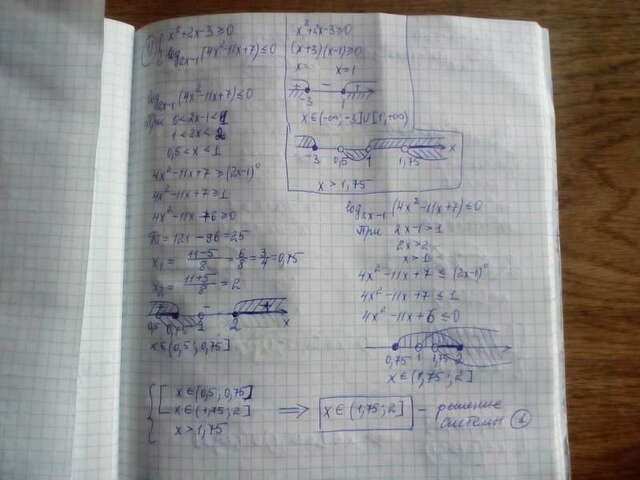 1) { x² + 2x - 3 ≥ 0
log₂ₓ₋₁ (4x² - 11x + 7) ≤ 0
log₂ₓ₋₁ (4x² - 11x + 7) ≤ 0
При 0 < 2x - 1 < 1
1 < 2x < 2
0,5 < x < 1
4x² - 11x + 7 ≥ (2x-1)⁰
4x² - 11x + 7 ≥ 1
4x² - 11x + 6 ≥ 0
D = 121 - 96 = 25
x₁ = (11-5)/8 = 6/8 = 3/4 = 0,75
x₂ = (11+5)/8 = 2
+ - +
0,5 0,75 1 2 x
x ∈ (0,5; 0,75]
x² + 2x - 3 ≥ 0
(x+3)(x-1) ≥ 0
x = x = 1
+ - +
-3 1
x ∈ (-∞; -3] ∪ [1; +∞)
-3 0,5 1 1,75 x
x > 1,75
log₂ₓ₋₁ (4x² - 11x + 7) ≤ 0
При 2x - 1 > 1
2x > 2
x > 1
4x² - 11x + 7 ≤ (2x-1)⁰
4x² - 11x + 7 ≤ 1
4x² - 11x + 6 ≤ 0
0,75 1 1,75 2
x ∈ (1,75; 2]
{ [ x ∈ (0,5; 0,75]
x ∈ (1,75; 2]
x > 1,75
⟹ x ∈ (1,75; 2] - решение
системы 1